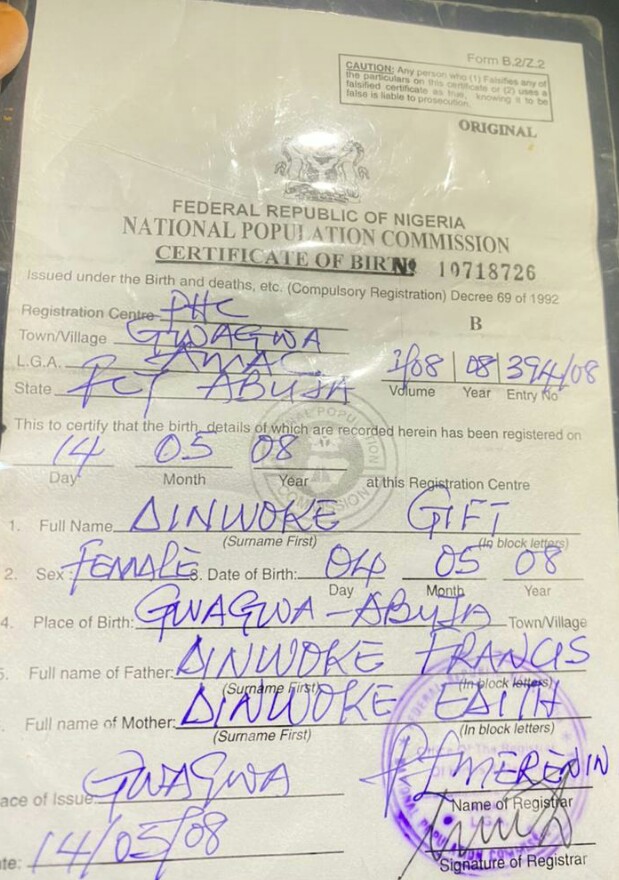 Form B.2/Z.2
CAUTION: Any person who (1) Falsifies any of
the particulars on this certificate or (2) uses a
falsified certificate as true, knowing it to be
false is liable to prosecution.
ORIGINAL
FEDERAL REPUBLIC OF NIGERIA
NATIONAL POPULATION COMMISSION
CERTIFICATE OF BIRTH № 10718726
Issued under the Birth and deaths, etc. (Compulsory Registration) Decree 69 of 1992
Registration Centre PHC
B
Town/Village GWAGWA
L.G.A. AMAC
State FCT ABUJA
08 394/08
Volume Year Entry No
This to certify that the birth, details of which are recorded herein has been registered on
14 05 08
Day Month Year at this Registration Centre
1. Full Name AINWOKE GIFT
(Surname First) (In block letters)
2. Sex: FEMALE 3. Date of Birth: 04 05 08
Day Month Year
4. Place of Birth: GWAGWA-ABUJA Town/Village
5. Full name of Father: AINWOKE FRANCIS
(Surname First) (In block letters)
Full name of Mother: AINWOKE EDITH
(Surname First) (In block letters)
Place of Issue: GWAGWA
Name of Registrar
Date: 14/05/08
Signature of Registrar
NATIONAL POPULATION COMMISSION